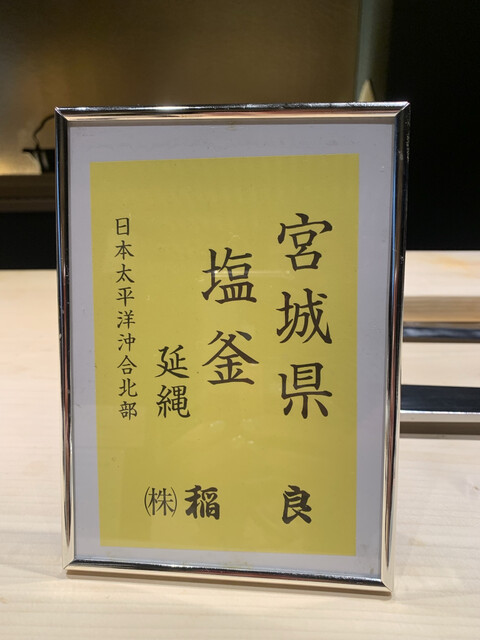 宮城県
塩釜
延縄
日本太平洋沖合北部
㈱稲良